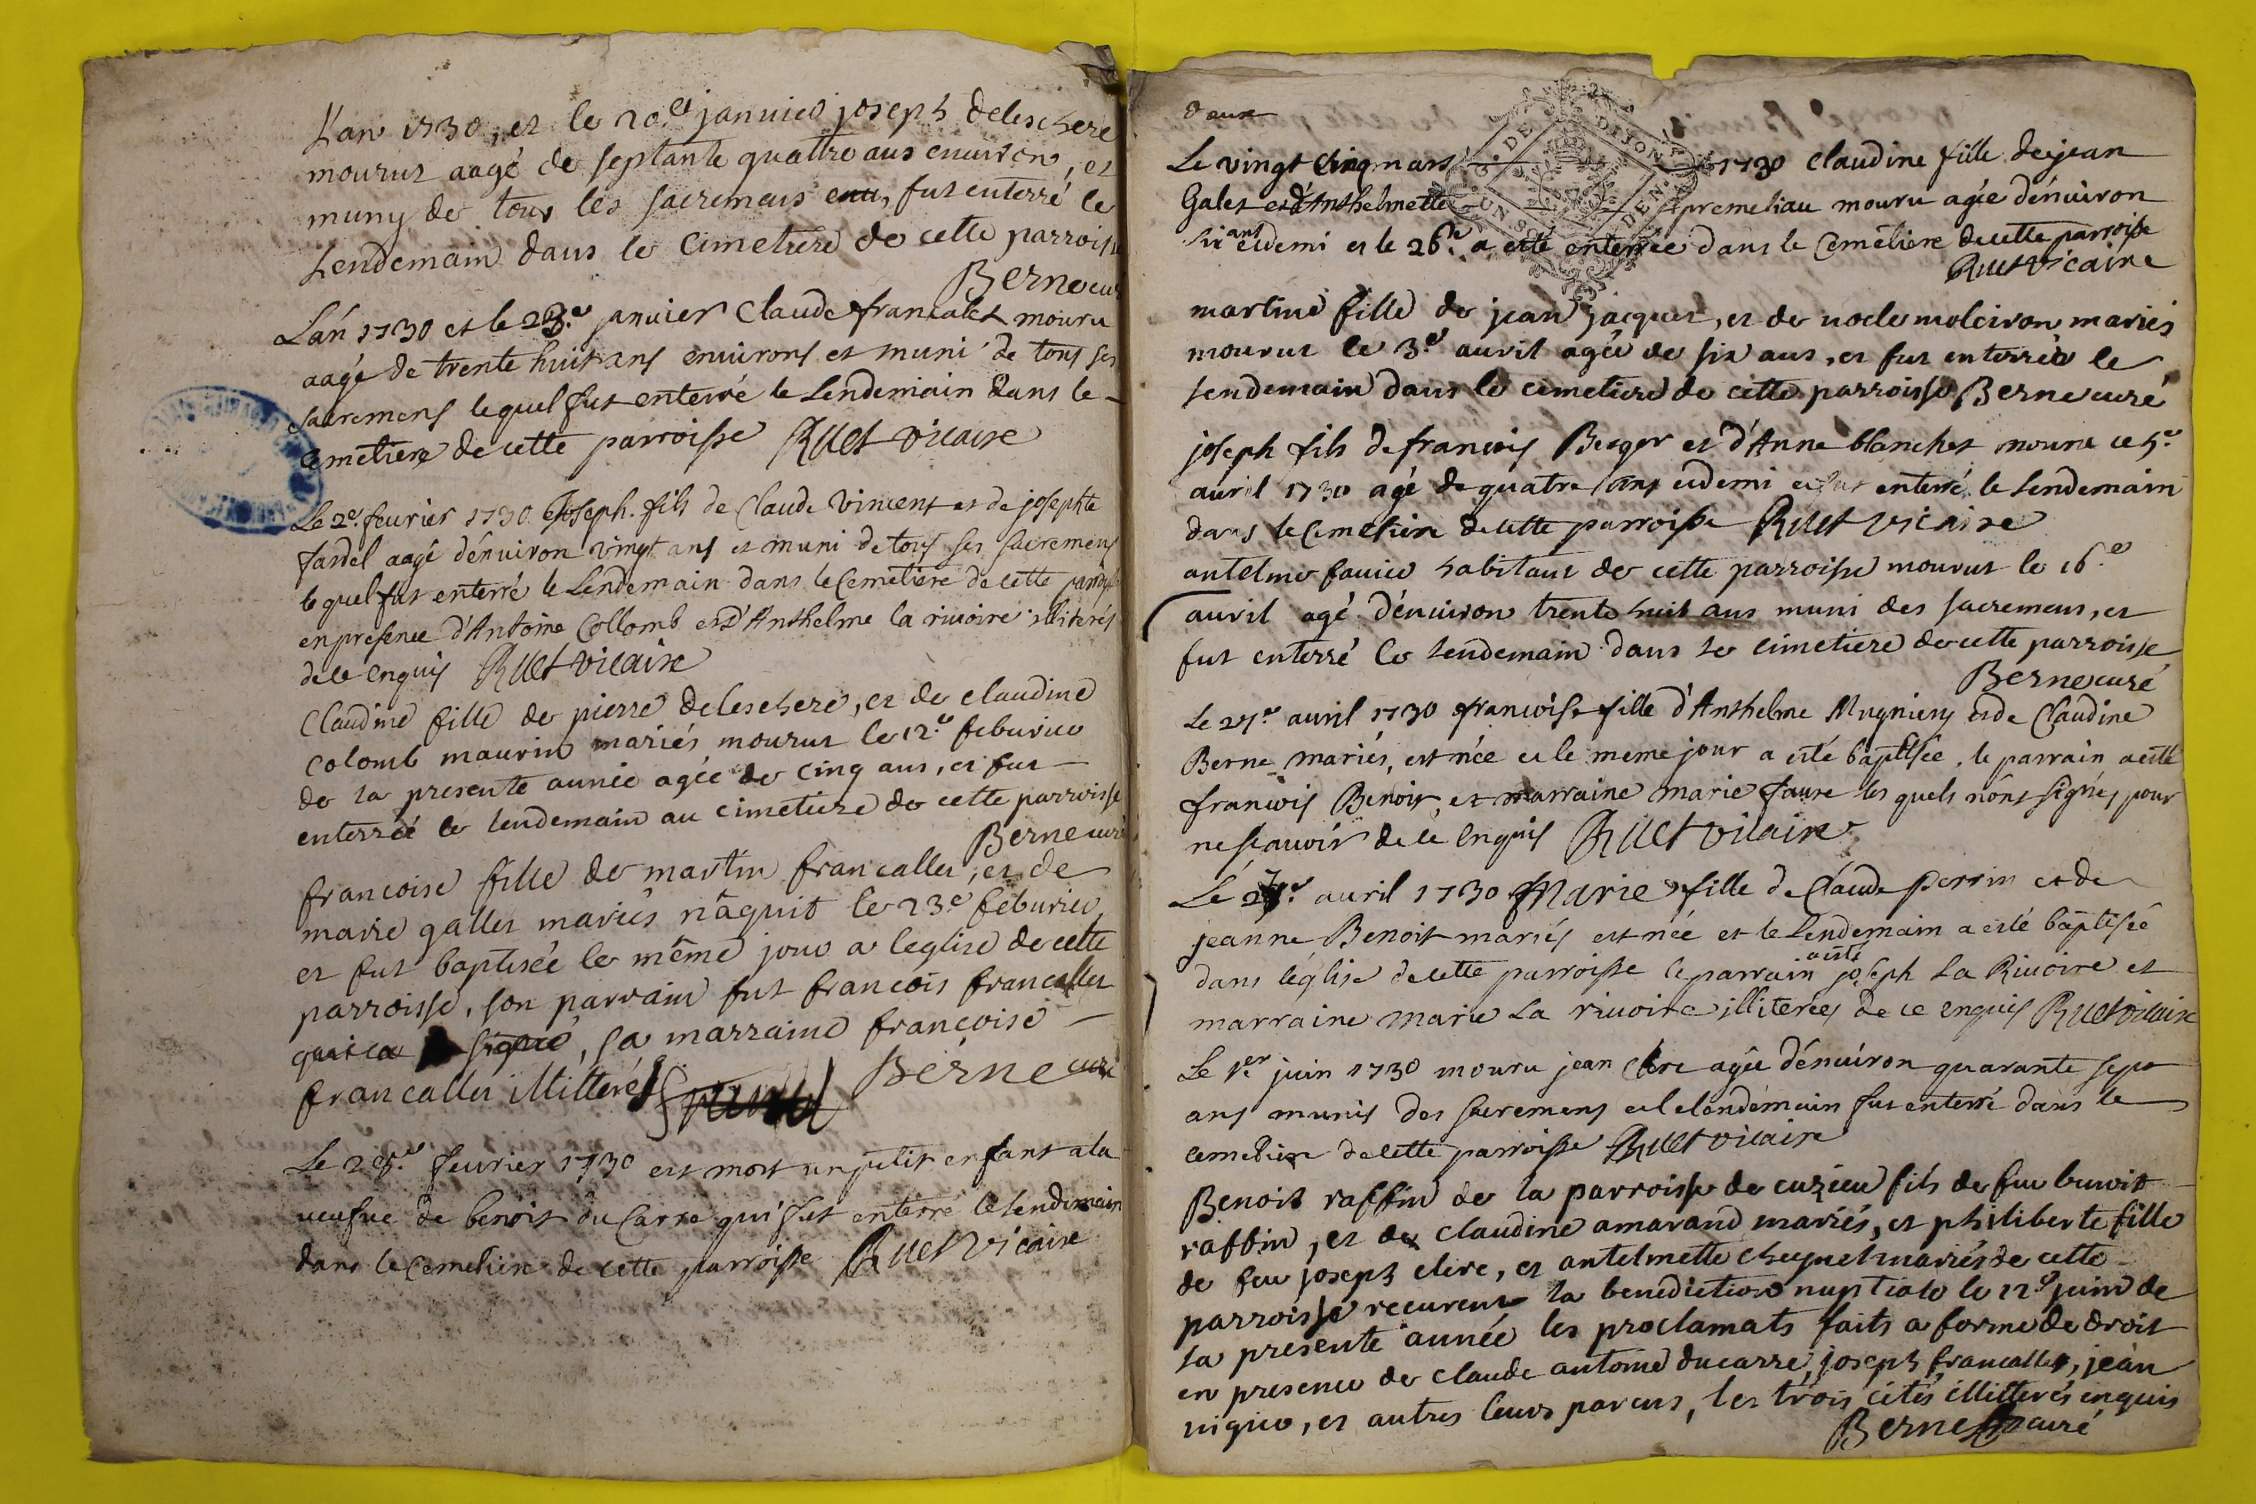 L'an 1730, et le 20.e janvier joseph deleschere
mourut aagé de septante quattre ans environ, et
muny de tous les sacremens, fut enterré le
Lendemain dans le Cimetiere de cette parroisse
Berne curé
L'an 1730 et le 23.e janvier Claude francalet mouru
aagé de trente huit ans environs et muni de tous ses
sacremens lequel fut enterré le Lendemain dans le
Cemetiere de cette parroisse Ruet vicaire
Le 2e. fevrier 1730 Joseph fils de Claude Vincent et de josephte
fardel aagé d'énuiron vingt ans et muni de tous ses sacremens
lequel fut enterré le Lendemain dans le Cemetiere de cette parroisse
en presence d'Antoine Collomb et d'Anthelme la rivoire illiterés
de ce enquis Ruet vicaire
Claudine fille de pierre deleschere, et de claudine
colomb maurin mariés mourut le 12.e feburier
de la presente année agée de cinq ans, et fut
enterrée le lendemain au cimetiere de cette parroisse
Berne curé
francoise fille de martin francallet, et de
marie gallet mariés nâquit le 23e feburier
et fut baptisée le même jour a leglise de cette
parroisse, son parrain fut francois francallet
qui a signé, sa marraine francoise
francallet illitteré Berne curé
Le fevrier 1730 est mort un petit enfant a la
ueufue de benoit du Carre qui fut enterré le lendemain
dans le Cemetiere de cette parroisse Ruet vicaire
deux
Le vingt cinq mars 1730 Claudine fille de jean
Galet et d'Anthelmette premeliau mouru agée d'énuiron
six ans et demi et le 26e. a esté enterrée dans le Cemêtiere de cette parroisse
Ruet vicaire
martine fille de jean jacquet, et de molciron mariés
mourut le 3.e avril agée de six ans, et fut enterrée le
lendemain dans le cimetiere de cette parroisse Berne curé
joseph fils de francois Berger et d'Anne blanchet mouru ce 5.e
avril 1730 agé de quatre ans et demi et fut enterré le Lendemain
dans le Cemetiere de cette parroisse Ruet vicaire
antelme favier habitant de cette parroisse mourut le 16.e
avril agé d'énuiron trente huit ans muni des sacremens, et
fut enterré le lendemain dans le cimetiere de cette parroisse
Berne curé
Le 27.e avril 1730 francoise fille d'Anthelme Mugniery et de Claudine
Berne mariés, est née et le meme jour a esté baptisée, le parrain a esté
francois Benoit, et marraine marie faure les quels n'ont signé, pour
ne scavoir de ce enquis Ruet vicaire
Le avril 1730 Marie fille de Claude perrin et de
jeanne Benoit mariés est née et le Lendemain a esté baptisée
dans l'église de cette parroisse le parrain a esté joseph La Rivoire et
marraine marie La rivoire illiterées de ce enquis Ruet vicaire
Le 1.er juin 1730 mouru jean Clere agée d'énuiron quarante sept
ans munis des sacremens et le lendemain fut enterré dans le
cemetiere de cette parroisse Ruet vicaire
Benoit raffin de la parroisse de cuzieu fils de feu benoit
raffin, et de claudine amarand mariés, et philiberte fille
de feu joseph clere, et antelmette cheynel mariés de cette
parroisse recurent la benediction nuptiale le 12.e juin de
la presente année les proclamats faits a forme de droit
en presence de claude antoine ducarre, joseph francallet, jean
nigier, et autres leurs parens, les trois cités illitterés enquis
Berne curé